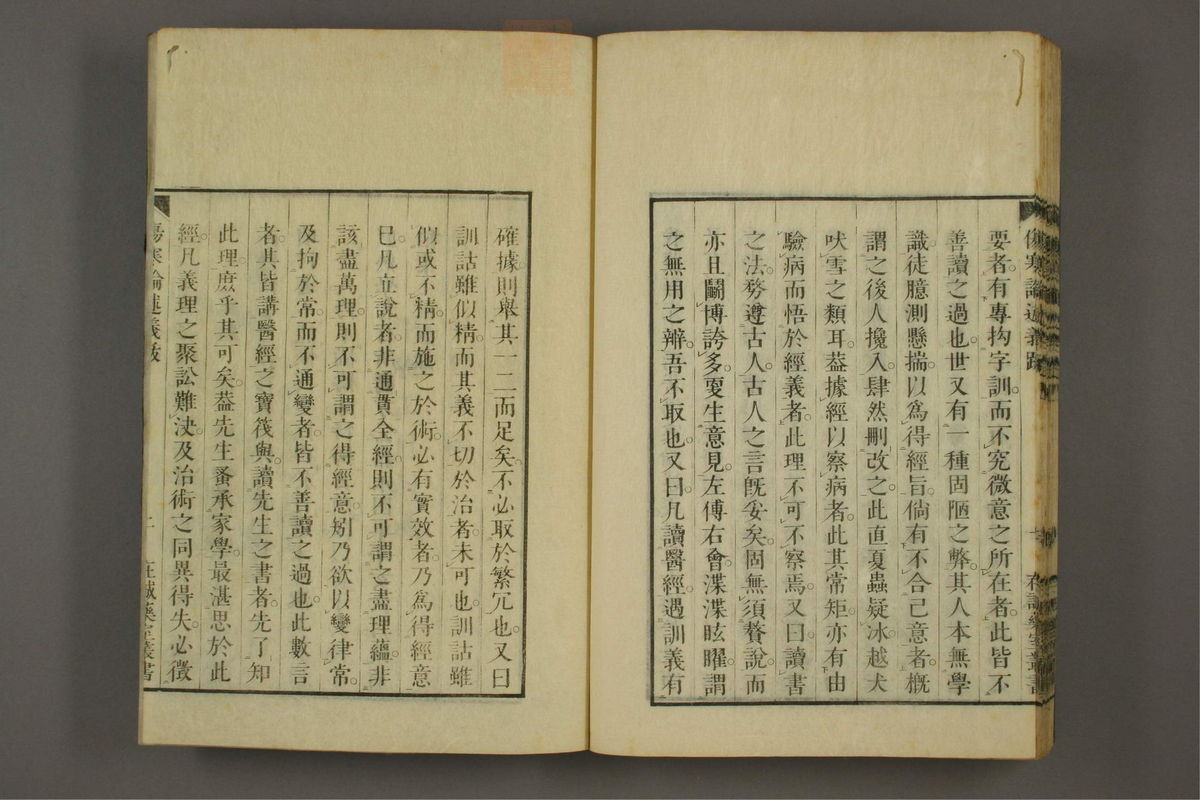 傷寒論述義跋
要者。有專拘字訓而不究微意之所在者。此皆不
善讀之過也。世又有一種固陋之弊。其人本無學
識。徒臆測懸揣。以爲得經旨。倘有不合己意者。槪
謂之後人攙入。肆然刪改之。此直夏蟲疑冰。越犬
吠雪之類耳。葢據經以察病者。此其常矩。亦有由
驗病而悟於經義者。此理不可不察焉。又曰。讀書
之法。務遵古人。古人之言旣妥矣。固無須贅說。而
亦且鬭博誇多。更生意見。左傅右會。渫渫眩曜。謂
之無用之辨。吾不取也。又曰。凡讀醫經。遇訓義有
確據。則舉其一二而足矣。不必取於繁冗也。又曰
訓詁雖似精。而其義不切於治者。未可也。訓詁雖
似或不精。而施之於術。必有實效者。乃爲得經意
已。凡立說者。非通貫全經。則不可謂之盡理蘊。非
該盡萬理。則不可謂之得經意。矧乃欲以變律常。
及拘於常而不通變者。皆不善讀之過也。此數言
者。其皆講醫經之寶筏與。讀先生之書者。先了知
此理。庶乎其可矣。葢先生蚤承家學。最湛思於此
經。凡義理之聚訟難決。及治術之同異得失。必徵
傷寒論述義跋